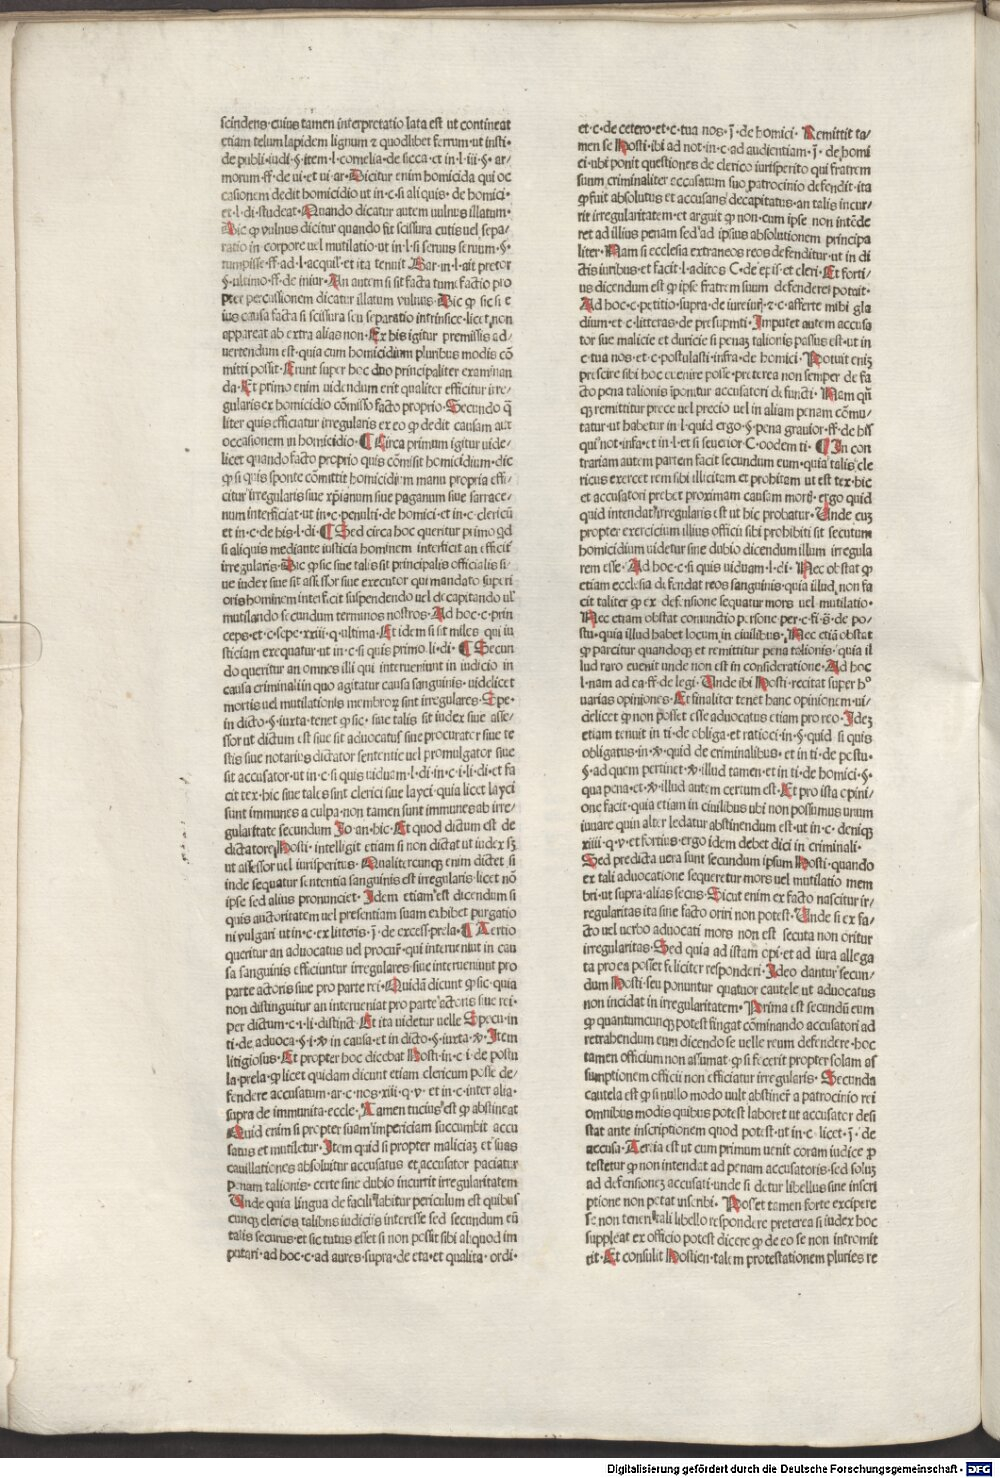 scindens·cuius tamen interpretatio lata est ut contineat
etiam telum lapidem lignum ⁊ quodlibet ferrum·ut insti⸗
de publi·iudi·§·item·l·cornelia·de sicca·et in·l·iii·§·ar⸗
morum·ff·de·vi·et vi·ar·Dicitur enim homicida qui oc
casionem dedit homicidio ut in·c·si aliquis·de homici·
et·l·di·studeat·Quando dicatur autem uulnus illatum·
Dic ꝙ vulnus dicitur quando fit scissura cutis uel sepa⸗
ratio in corpore uel mutilatio·ut in·l·si seruus seruum·§·
rumpisse·ff·ad·l·acquil·et ita tenuit Bar·in·l·ait pretor
§·ultimo·ff·de iniur·An autem si sit facta tumefactio pro
pter percussionem dicatur illatum vulnus·Dic ꝙ sic si e
ius causa facta si scissura seu separatio intrinsice·licet non
appareat ab extra alias non·Ex his igitur premissis ad⸗
uertendum est·quia cum homicidium pluribus modis cō
mitti possit·Erunt super hoc duo principaliter examinan
da·Et primo enim uidendum erit qualiter efficitur irre⸗
gularis ex homicidio cōmisso facto proprio·Secundo q̄
liter quis efficiatur irregularis ex eo ꝙ dedit causam aut
occasionem in homicidio·¶ Circa primum igitur uide⸗
licet quando facto proprio quis cōmisit homicidium·dic
ꝙ si quis sponte cōmittit homicidium manu propria effi⸗
citur irregularis siue xp̄ianum siue paganum siue sarrace⸗
num interficiat·ut in·c·penulti·de homici·et in·c·clericū
et in·c·de his·l·di·¶ Sed circa hoc queritur primo qd
si aliquis mediante iusticia hominem interficit an efficit᷑
irregularis·Dic ꝙ sic siue talis sit principalis officialis si⸗
ue iudex siue sit assessor siue executor qui mandato superi
oris hominem interficit suspendendo uel decapitando ul᷑
mutilando secundum terminos nostros·Ad hoc·c·prin
ceps·et·c·sepe·xxiii·q·ultima·Et idem si sit miles qui iu
sticiam exequatur·ut in·c·si quis primo·li·di·¶ Secun
do queritur an omnes illi qui interueniunt in iudicio in
causa criminali in quo agitatur causa sanguinis·uidelicet
mortis uel mutilationis membroꝝ sint irregulares·Spe·
in dicto·§·iuxta·tenet ꝙ sic·siue talis sit iudex siue asse⸗
ssor ut dictum est siue sit aduocatus siue procurator siue te
stis siue notarius dictator sententie uel promulgator siue
sit accusator·ut in·c·si quis viduam·l·di·in·c·i·li·di·et fa
cit tex·hic siue tales sint clerici siue layci·quia licet layci
sunt immunes a culpa·non tamen sunt immunes ab irre⸗
gularitate secundum Jo·an·hic·Et quod dictum est de
dictatore Hosti·intelligit etiam si non dictat ut iudex sꝫ
ut assessor uel iurisperitus·Qualitercunqꝫ enim dictet si
inde sequatur sententia sanguinis est irregularis·licet nō
ipse sed alius pronunciet·Idem etiam est dicendum si
quis auctoritatem uel presentiam suam exhibet purgatio
ni vulgari ut in·c·ex litteris·j̄·de excess·prela·¶ Tertio
queritur an aduocatus uel procur᷑·qui interueniut in cau
sa sanguinis efficiuntur irregulares·siue interueniunt pro
parte actoris siue pro parte rei·Quidā dicunt ꝙ sic·quia
non distinguitur an interueniat pro parte actoris siue rei·
per dictum·c·i·li·distinct·Et ita videtur uelle Specu·in
ti·de aduoca·§·i·℣ in causa·et in dicto·§·iuxta·℣·Item
litigiosus·Et propter hoc dicebat Hosti·in·c·i·de postu
la·prela·ꝙ licet quidam dicunt etiam clericum posse de⸗
fendere accusatum·ar·c·nos·xiii·q·v·et in·c·inter alia·
supra de immunita·eccle·Tamen tucius est ꝙ abstineat
Quid enim si propter suam impericiam succumbit accu
satus et mutiletur·Item quid si propter maliciaꝫ et suas
cauillationes absoluitur accusatus et accusator paciatur
penam talionis·certe sine dubio incurrit irregularitatem
Unde quia lingua de facili labitur periculum est quibus
cunqꝫ clericis talibus iudiciis interesse sed secundum eū
talis securus·et sic tutus esset si non possit sibi aliquod im
putari·ad hoc·c·ad aures·supra·de eta·et qualita·ordi·
et·c·de cetero·et·c·tua nos·j̄·de homici·Remittit ta⸗
men se Hosti·ibi ad not·in·c·ad audientiam·j̄·de homi
ci·ubi ponit questiones de clerico iurisperito qui fratrem
suum criminaliter accusatum suo patrocinio defendit·ita
ꝙ fuit absolutus et accusans decapitatus·an talis incur⸗
rit irregularitatem·et arguit ꝙ non·cum ipse non intēde
ret ad illius penam sed ad ipsius absolutionem principa
liter·Nam si ecclesia extraneos reos defenditur·ut in di
ctis iuribus·et facit·l·aditos C·de ep̄is·et cleri·Et forti⸗
us dicendum est ꝙ ipse fratrem suum defendere potuit·
Ad hoc·c·petitio·supra·de iureiur̄·⁊·c·afferte mihi gla
dium·et·c·litteras·de presumpti·Imputet autem accusa
tor sue malicie et duricie si penaꝫ talionis passus est·ut in
c·tua nos·et·c·postulasti·infra·de homici·Potuit eniꝫ
prescire sibi hoc euenire posse·preterea non semper de fa
cto pena talionis iponitur accusatori defuncti·Nam qn̄
qꝫ remittitur prece uel precio uel in aliam penam cōmu⸗
tatur·ut habetur in·l·quid ergo·§·pena grauior·ff·de his
qui not·infa·et in·l·et si seuerior·C·eodem ti·¶ In con
trariam autem partem facit secundum eum·quia talis cle
ricus exercet rem sibi illicitam et prohibitam ut est tex·hic
et accusatori prebet proximam causam mortis·ergo quid
quid intendat irregularis est ut hic probatur·Unde cuꝫ
propter exercicium illius officii sibi prohibiti sit secutum
homicidium uidetur sine dubio dicendum illum irregula
rem esse·Ad hoc·c·si quis viduam·l·di·Nec obstat ꝙ
etiam ecclesia defendat reos sanguinis·quia illud non fa
cit taliter ꝙ ex defensione sequatur mors uel mutilatio·
Nec etiam obstat coniunctio persone per·c·fi·s̄·de po⸗
stu·quia illud habet locum in ciuilibus·Nec etiā obstat
ꝙ parcitur quandoqꝫ et remittitur pena talionis·quia il
lud raro euenit unde non est in consideratione·Ad hoc
l·nam ad ea·ff·de legi·Unde ibi Hosti·recitat super hͦ
uarias opiniones·Et finaliter tenet hanc opinionem·ui⸗
delicet ꝙ non posset esse aduocatus etiam pro reo·Ideꝫ
etiam tenuit in ti·de obliga·et ratioci·in·§·quid si quis
obligatus·in·℣·quid de criminalibus·et in ti·de postu·
§·ad quem pertinet·℣·illud tamen·et in ti·de homici·§·
qua pena·et·℣·illud autem certum est·Et pro ista opini⸗
one facit·quia etiam in ciuilibus ubi non possumus unum
iuuare quin alter ledatur abstinendum est·ut in·c·deniqꝫ
xiiii·q·v·et fortius·ergo idem debet dici in criminali·
Sed predicta uera sunt secundum ipsum Hosti·quando
ex tali aduocatione sequeretur mors uel mutilatio mem
bri·ut supra·alias secus·Sicut enim ex facto nascitur ir⸗
regularitas ita sine facto oriri non potest·Unde si ex fa⸗
cto uel uerbo aduocati mors non est secuta non oritur
irregularitas·Sed quia ad istam opi·et ad iura allega
ta pro ea posset feliciter responderi·Ideo dantur secun⸗
dum Hosti·seu ponuntur quatuor cautele ut aduocatus
non incidat in irregularitatem·Prima est secundū eum
ꝙ quantumcunqꝫ potest fingat cōminando accusatori ad
retrahendum eum dicendo se uelle reum defendere·hoc
tamen officium non assumat·ꝙ si fecerit propter solam as
sumptionem officii non efficiatur irregularis·Secunda
cautela est ꝙ si nullo modo uult abstiner̄ a patrocinio rei
omnibus modis quibus potest laboret ut accusator desi
stat ante inscriptionem quod potest·ut in·c·licet·j̄·de
accusa·Tertia est ut cum primum uenit coram iudice ꝓ
testetur ꝙ non intendat ad penam accusatoris·sed soluꝫ
ad defensioneꝫ accusati·unde si detur libellus sine inscri
ptione non petat inscribi·Posset tamen forte excipere
se non teneri tali libello respondere preterea si iudex hoc
suppleat ex officio potest dicere ꝙ de eo se non intromit
tit·Et consulit Hostien·talem protestationem pluries re
Digitalisierung gefördert durch die Deutsche Forschungsgemeinschaft · DFG